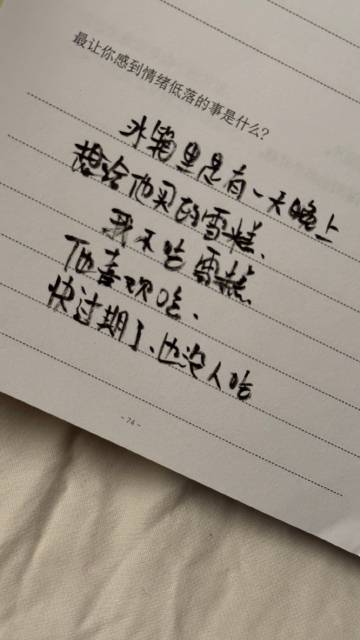 最让你感到情绪低落的事是什么？
冰箱里是有一天晚上
想给他买的雪糕、
我不吃雪糕
他喜欢吃、
快过期了、也没人吃
- 74 -